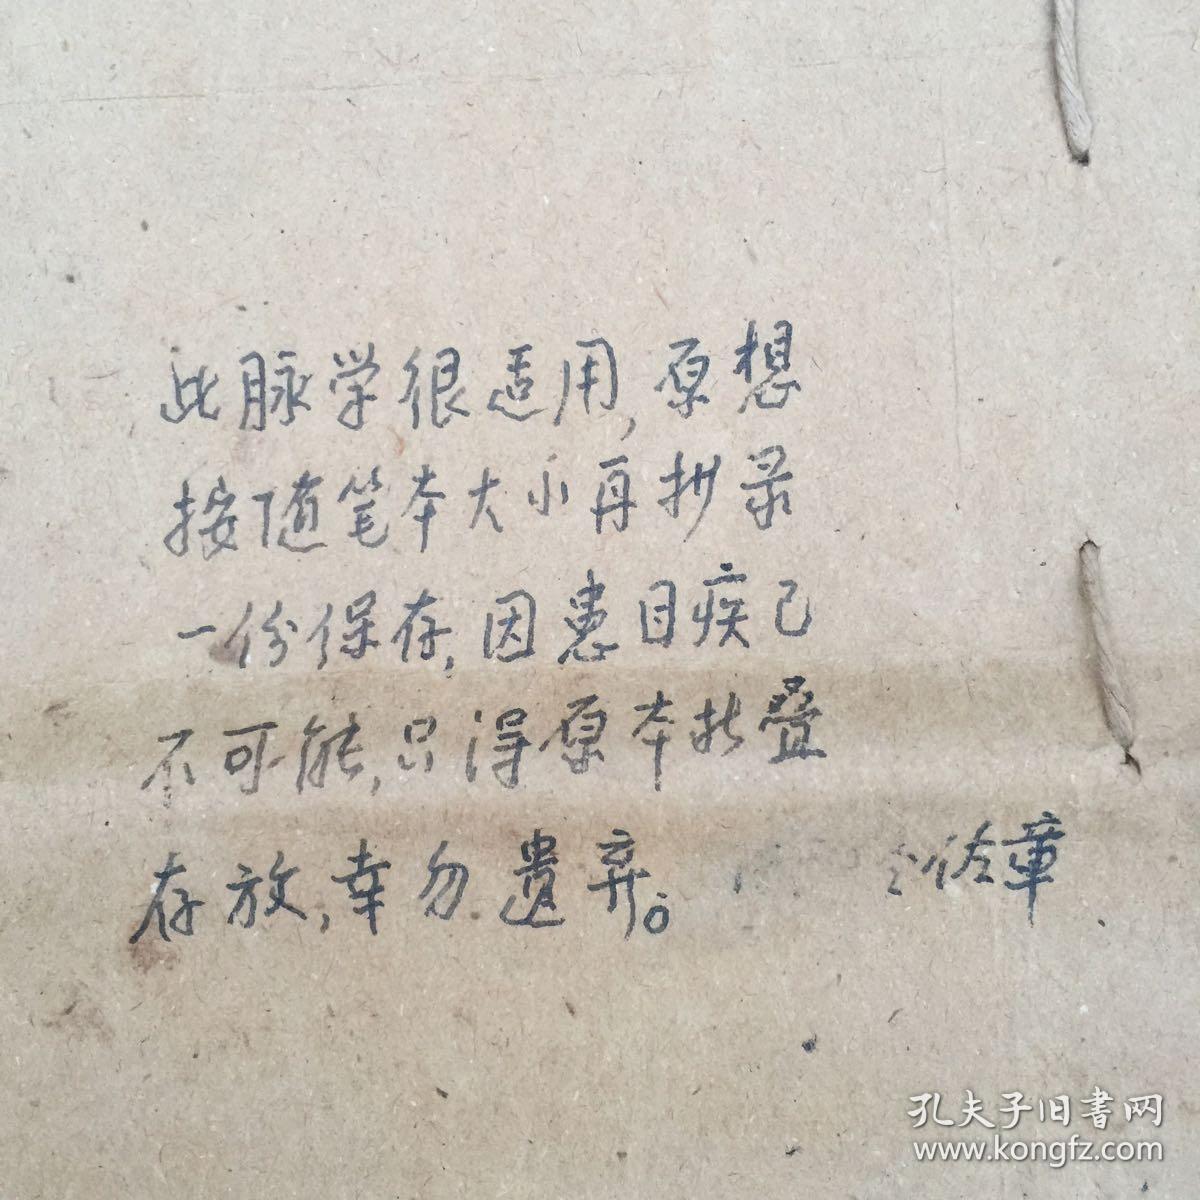 此脉学很适用,原想
按随笔本大小再抄录
一份保存,因患目疾已
不可能,只得原本折叠
存放,幸勿遗弃。
章
孔夫子旧书网
www.kongfz.com